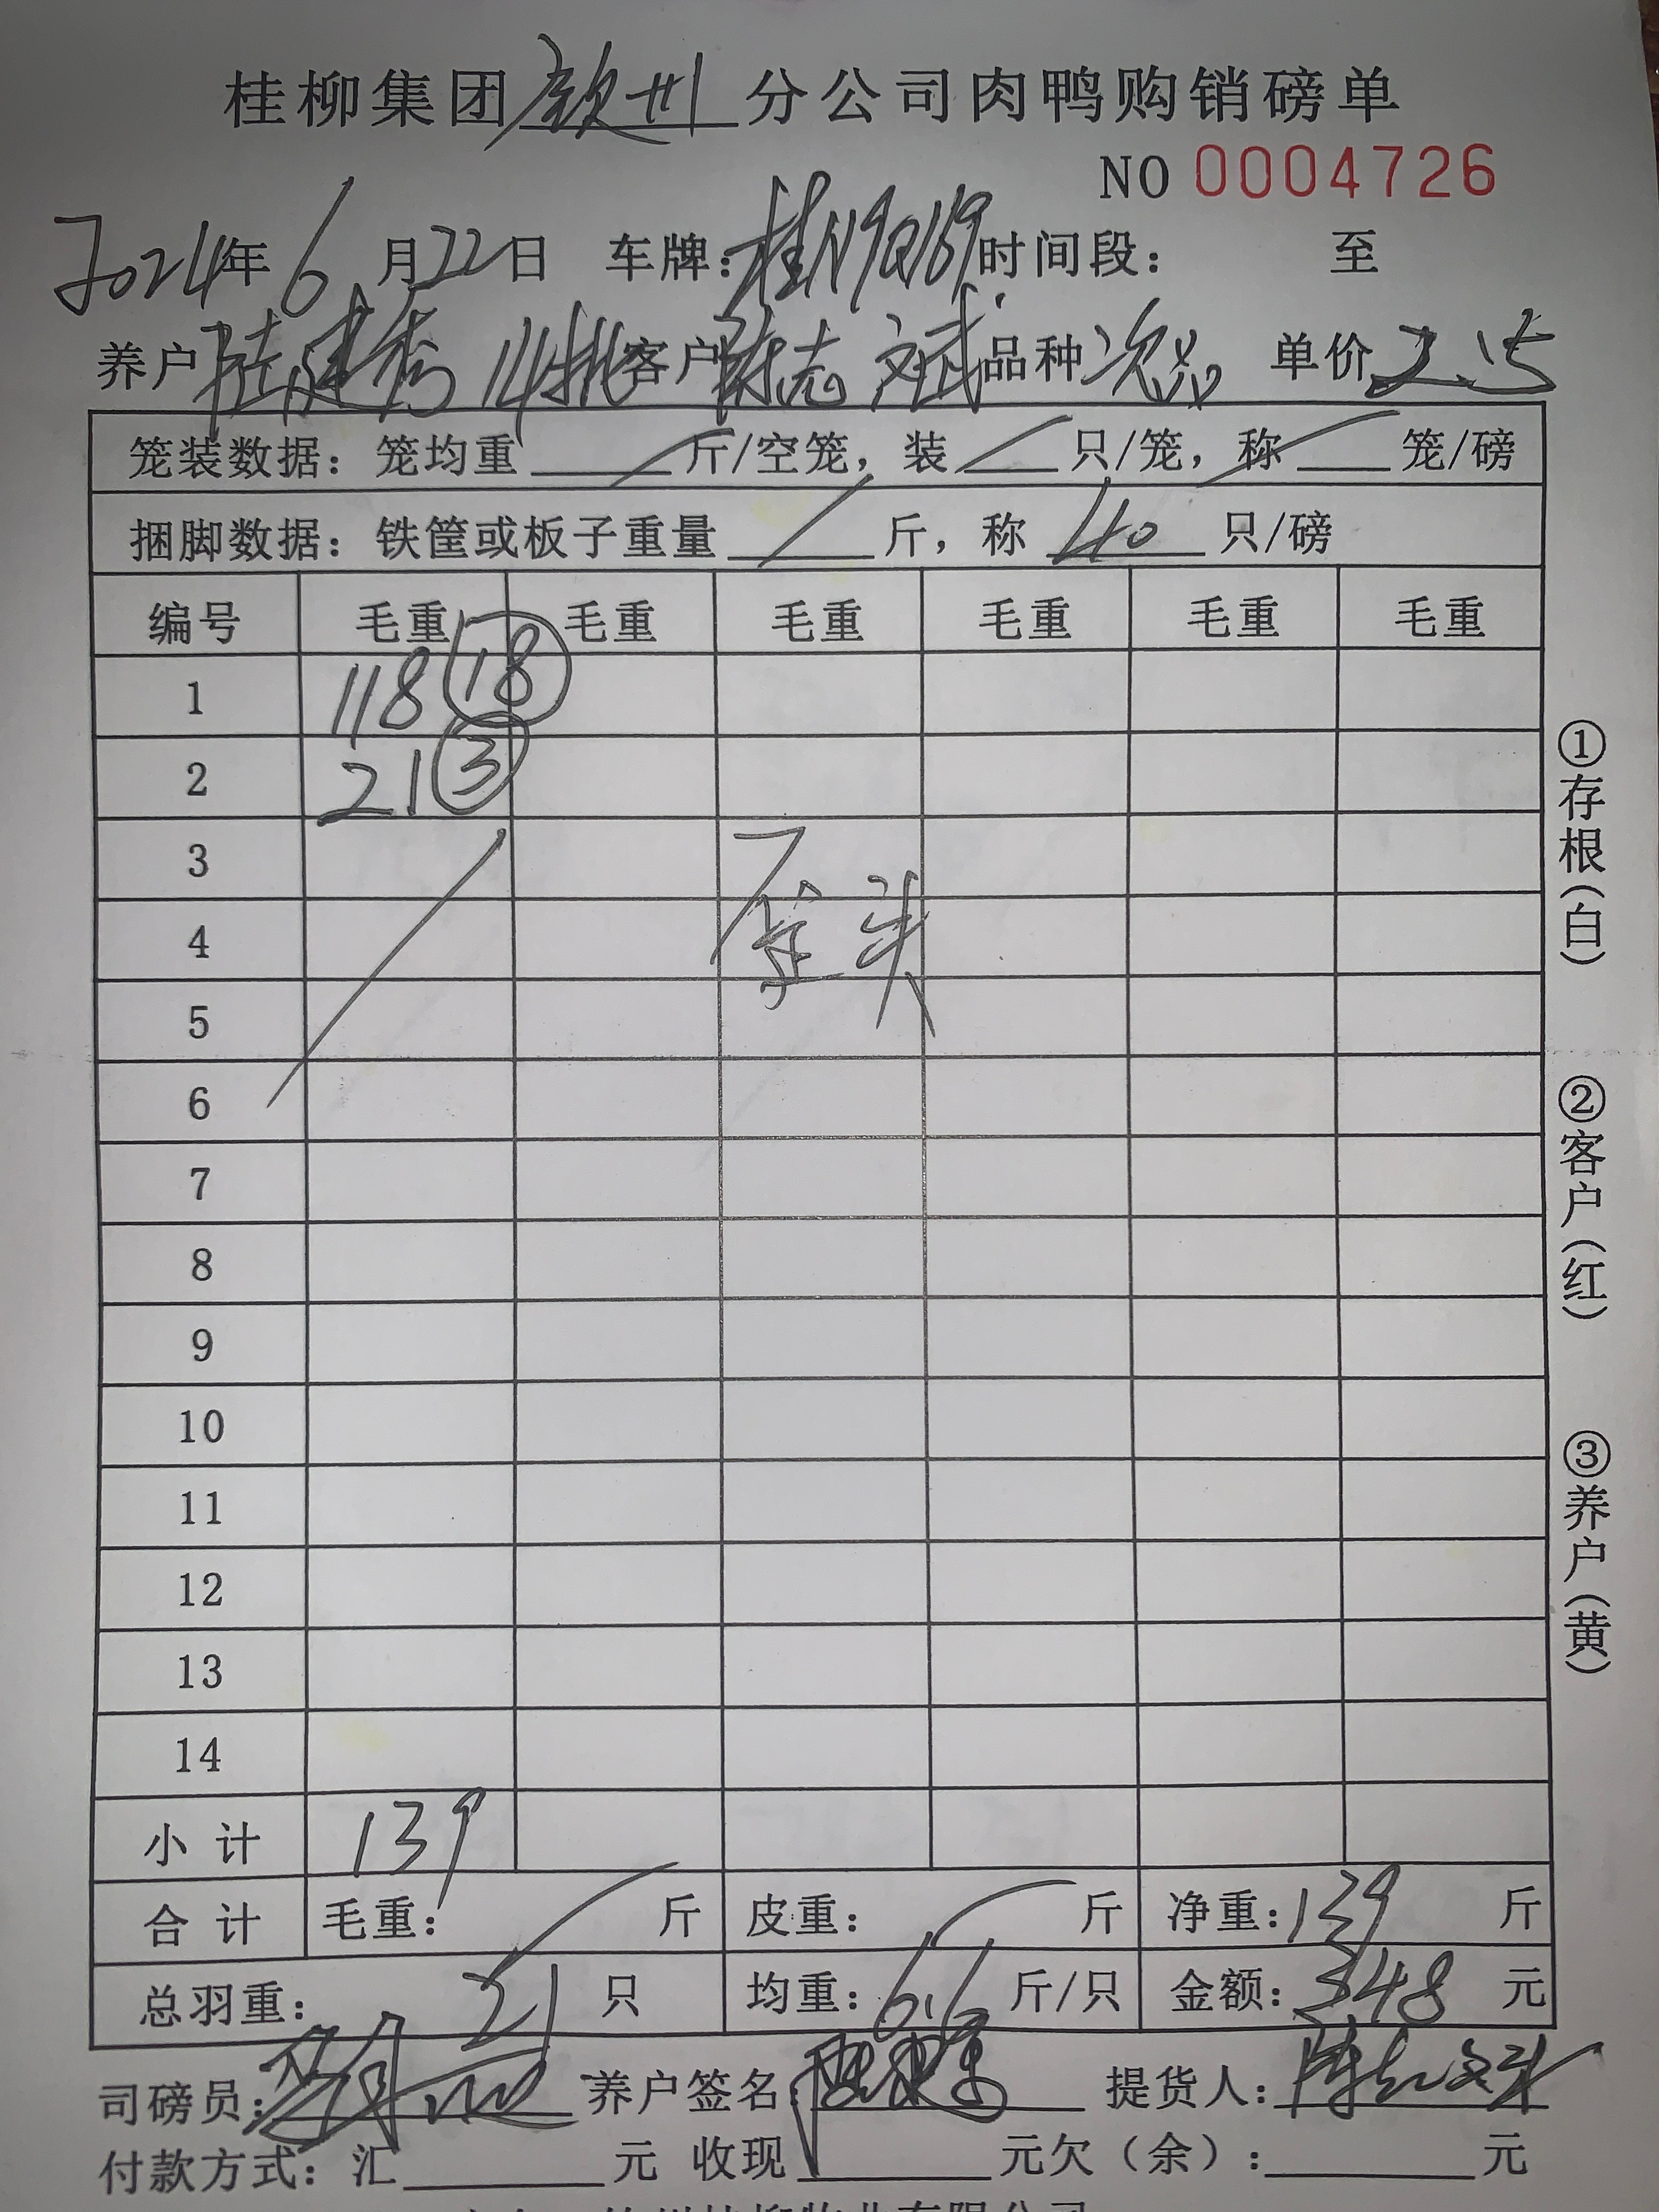 桂柳集团钦州分公司肉鸭购销磅单
NO 0004726
2024年6月22日 车牌:桂N9Q169时间段: 至
养户陆建秀 14批客户陈志 文武品种次品 单价2.5
笼装数据: 笼均重 / 斤/空笼, 装 / 只/笼, 称 / 笼/磅
捆脚数据: 铁筐或板子重量 / 斤, 称 40 只/磅
编号 毛重 毛重 毛重 毛重 毛重 毛重
1 118 ⑱
2 21 ③
3
4
5
6
7
8
9
10
11
12
13
14
小计 139
合计 毛重: / 斤 皮重: / 斤 净重:139 斤
总羽重: 21 只 均重:6.6 斤/只 金额:348 元
司磅员: 养户签名: 提货人:
付款方式: 汇 元 收现 元欠(余): 元
①存根(白)
②客户(红)
③养户(黄)